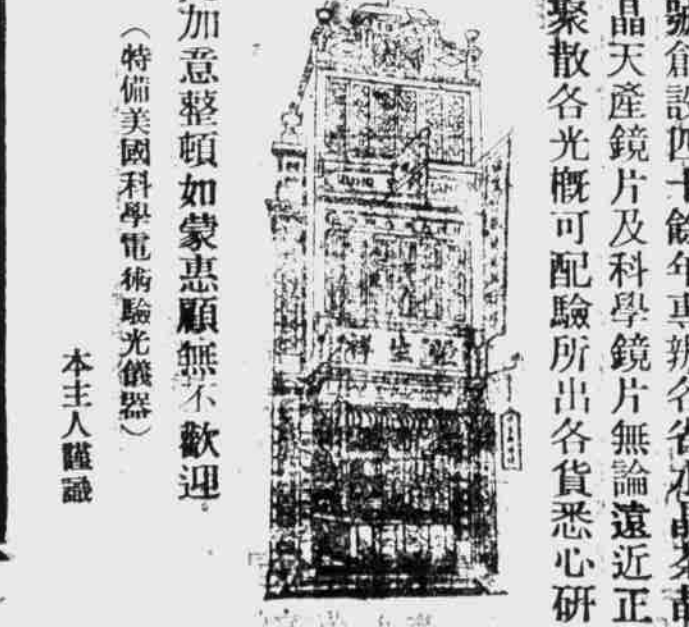 號創設四十餘年專辦各省水晶茶
晶天產鏡片及科學鏡片無論遠近正
聚散各光概可配驗所出各貨悉心研
祥生
加意整頓如蒙惠顧無不歡迎。
（特備美國科學電術驗光儀器）
本主人謹識